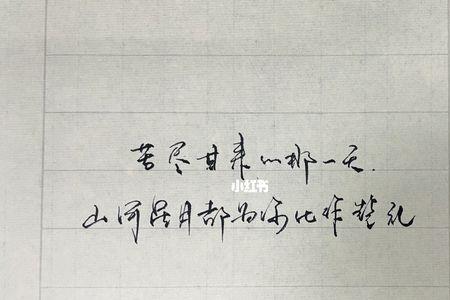 苦尽甘来的那一天.
小红书
山河星月都为你作贺礼